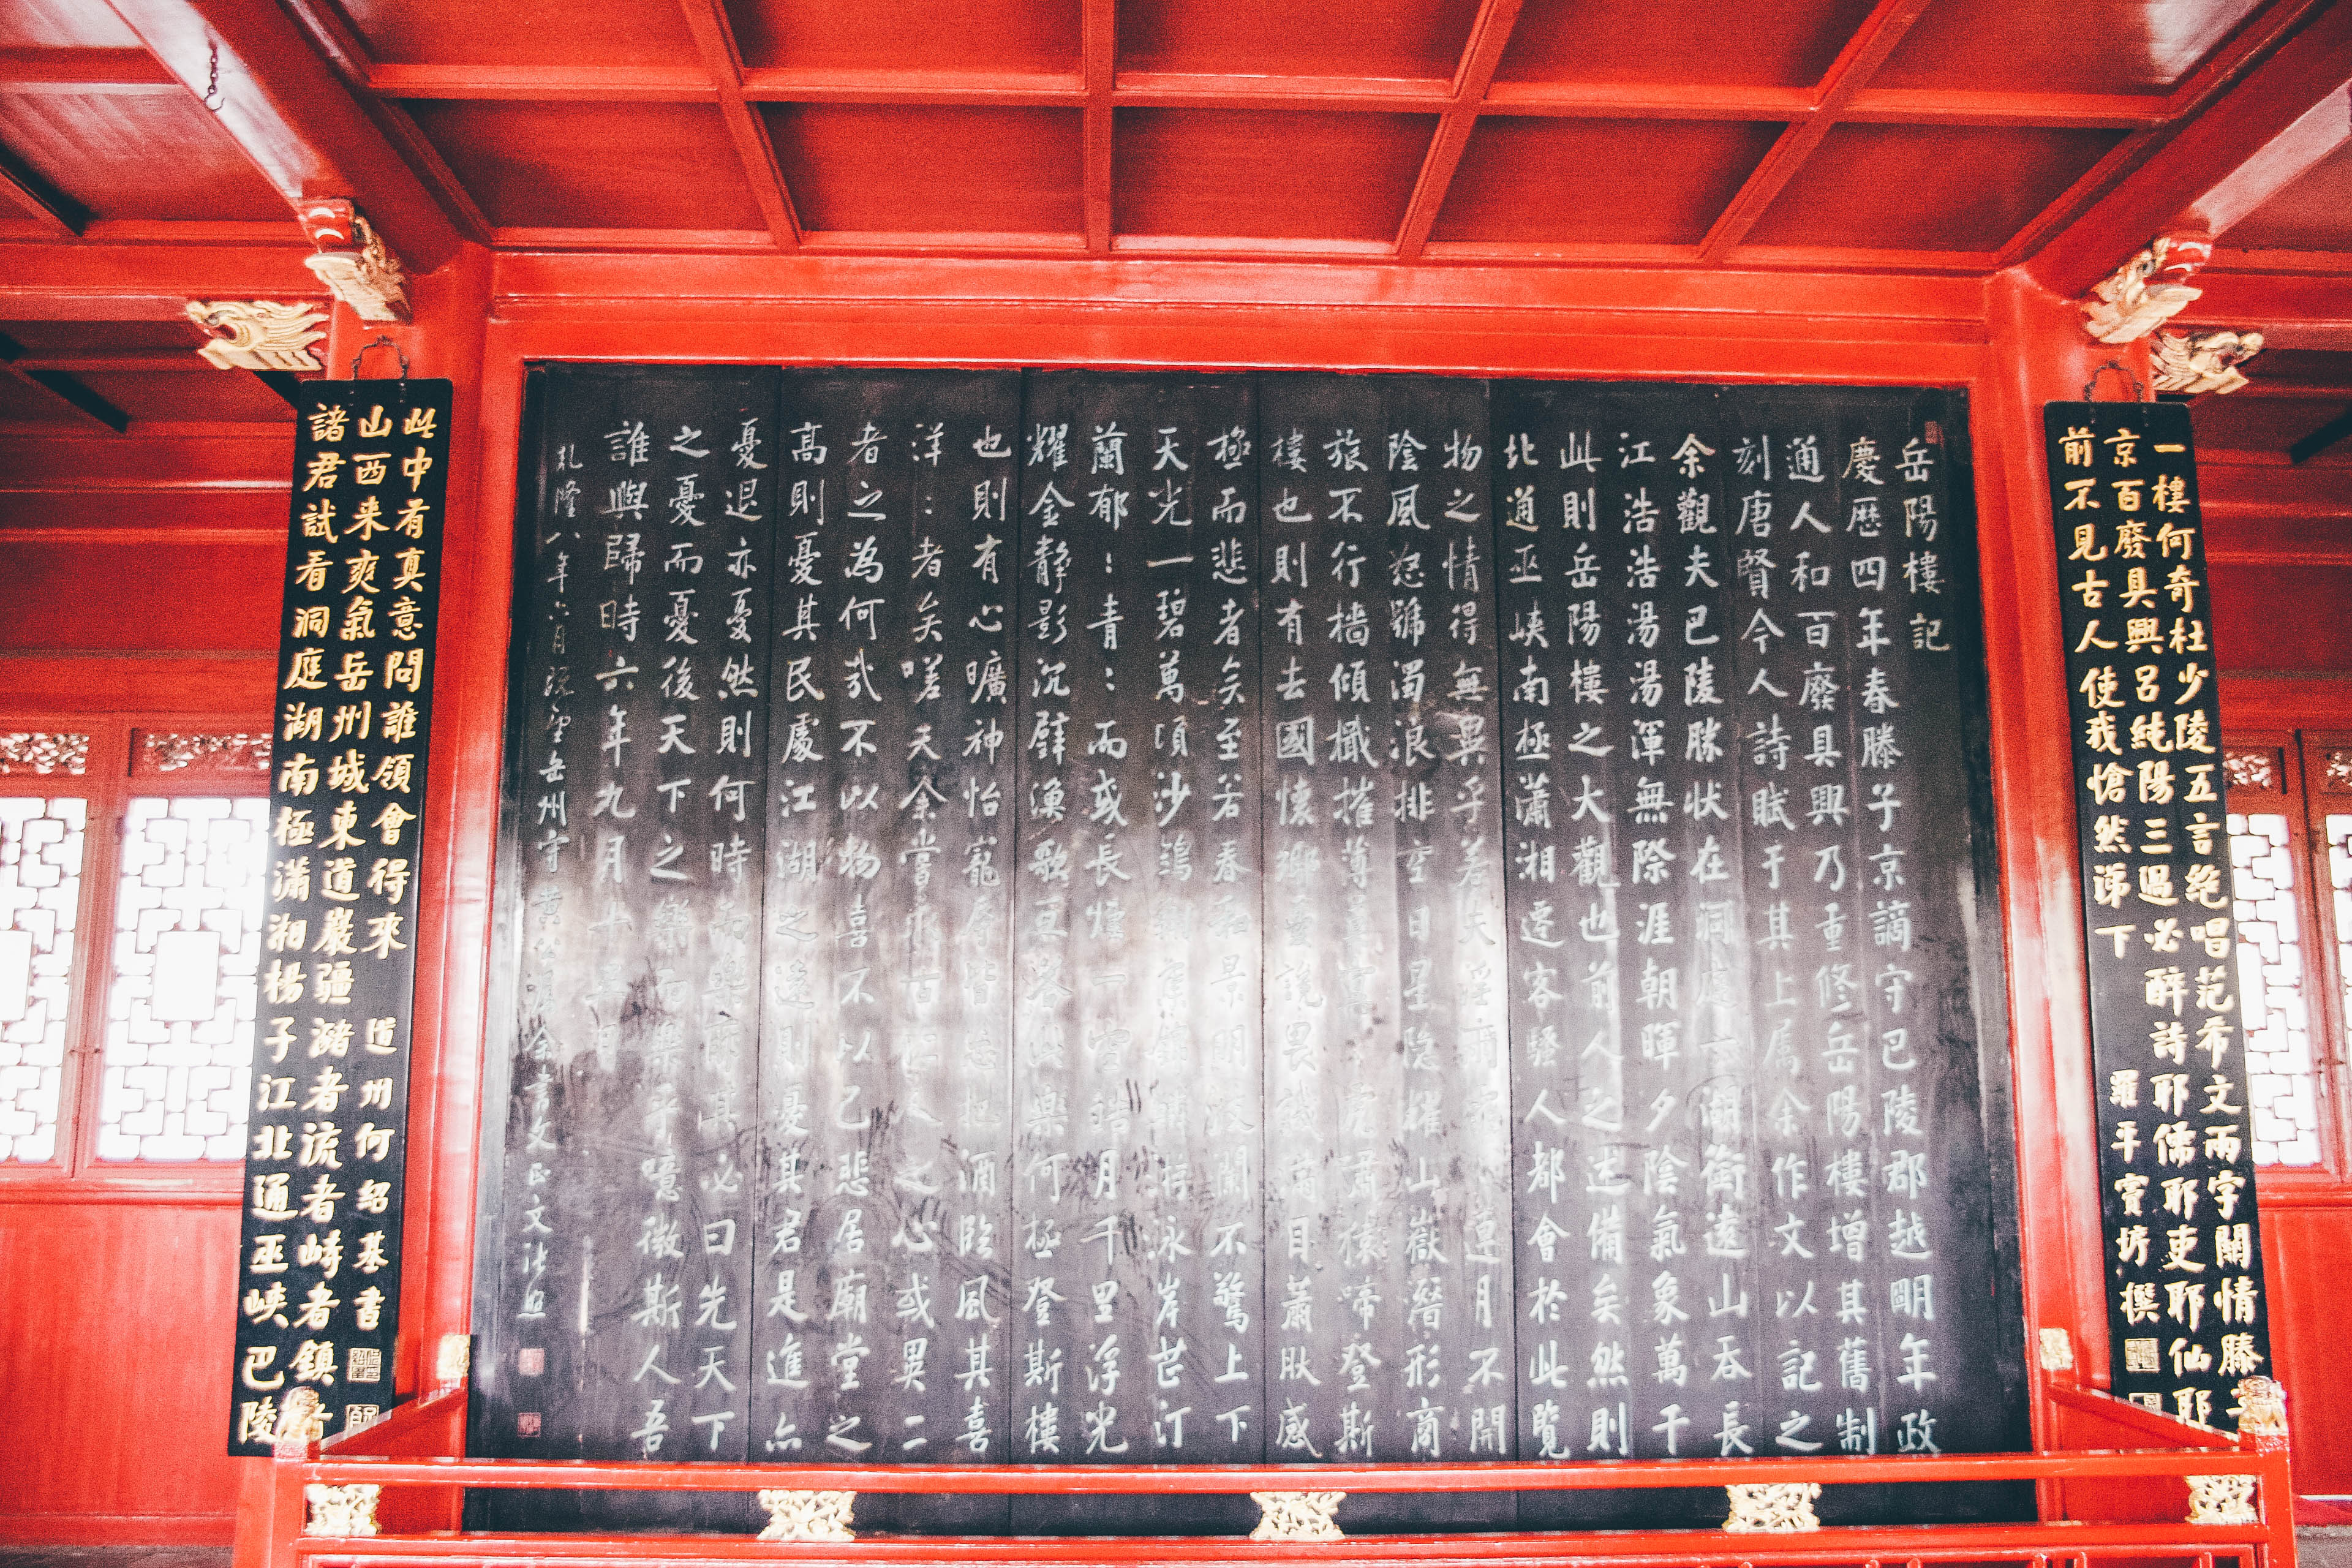 一樓何奇杜少陵五言絶唱范希文兩字關情滕子
京百廢具興呂純陽三過必醉詩耶儒耶吏耶仙耶
前不見古人使我愴然涕下 羅平竇垿撰
岳陽樓記
慶歷四年春滕子京謫守巴陵郡越明年政
通人和百廢具興乃重修岳陽樓增其舊制
刻唐賢今人詩賦于其上属余作文以記之
余觀夫巴陵勝状在洞庭一湖銜遠山吞長
江浩浩湯湯渾無際涯朝暉夕陰氣象萬千
此則岳陽樓之大觀也前人之述備矣然則
北通巫峽南極瀟湘遷客騷人都會於此覽
物之情得無異乎若夫淫雨霏月不開
陰風怒號濁浪排空日星隐耀山嶽潛形商
旅不行檣傾檝摧薄暮冥冥虎嘯猿啼登斯
樓也則有去國懷鄉憂讒畏譏滿目蕭然感
極而悲者矣至若春和景明波瀾不驚上下
天光一碧萬頃沙鷗翔集錦鱗游泳岸芷汀
蘭郁：青：而或長煙一空皓月千里浮光
耀金靜影沉璧漁歌互答此樂何極登斯樓
也則有心曠神怡寵辱皆忘把酒臨風其喜
洋：者矣嗟夫余嘗求古仁人之心或異二
者之為何哉不以物喜不以己悲居廟堂之
高則憂其民處江湖之遠則憂其君是進亦
憂退亦憂然則何時而樂耶其必曰先天下
之憂而憂後天下之樂而樂乎噫微斯人吾
誰與歸時六年九月十五日
乾隆八年六月岳州守黃張照
諸君試看洞庭湖南極瀟湘楊子江北通巫峽巴陵
山西来爽氣岳州城東道巖疆瀦者流者峙者鎮者
此中有真意問誰領會得來 道州何紹基書